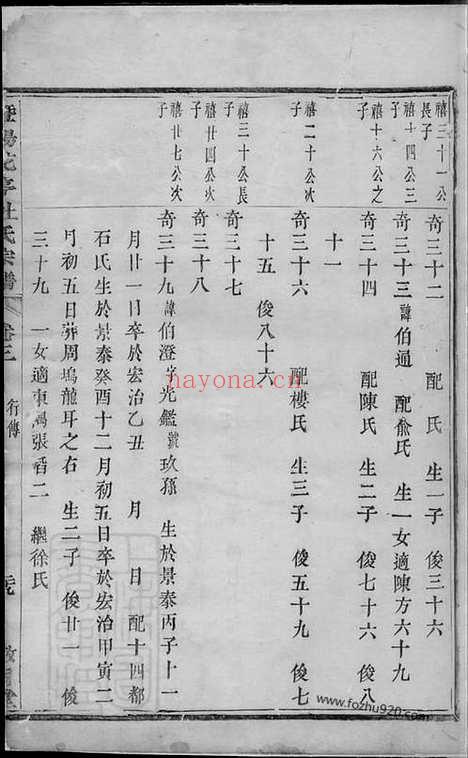 禧三十一公長子
奇三十二 配 氏 生一子 俊三十六
禧十四公三子
奇三十三諱伯通 配俞氏 生一女適陳方六十九
禧十六公之子
奇三十四 配陳氏 生二子 俊七十六 俊八
十一
禧二十公次子
奇三十六 配樓氏 生三子 俊五十九 俊七
十五 俊八十六
禧三十公長子
奇三十七
禧廿四公次子
奇三十八
禧廿七公次子
奇三十九諱伯澄字光鑑號玖孫 生於景泰丙子十一
月廿一日卒於宏治乙丑 月 日 配十四都
石氏生於景泰癸酉十二月初五日卒於宏治甲寅二
月初五日葬周塢龍耳之右 生二子 俊廿一 俊
三十九 一女適東 張 二 繼徐氏
暨陽 亭杜氏宗譜 卷三 行傳
nayona.cn
www.fozhu920.com